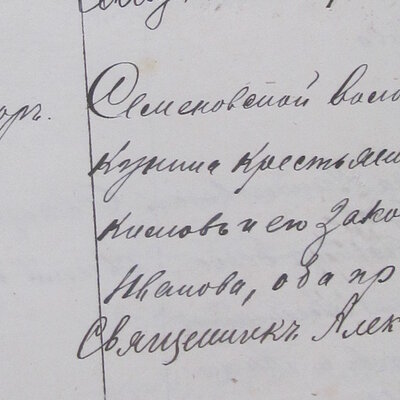 оръ.
Семеновской воло
Кузина крестьяни
Кисловъ и его зако
Иванова, оба пр
Священникъ Алек